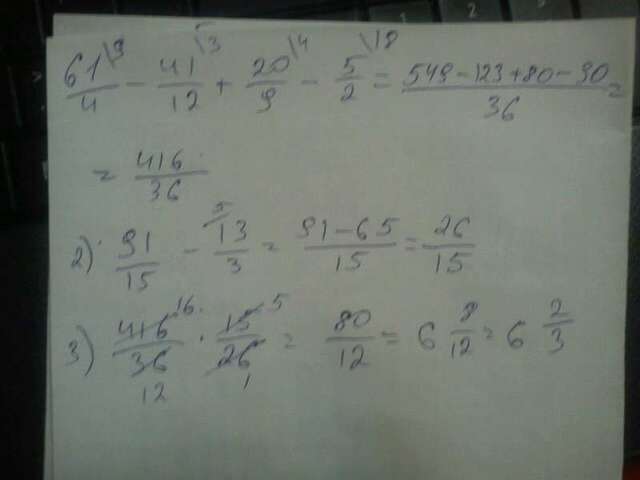 61/4 \9 − 41/12 \3 + 20/9 \4 − 5/2 \18 = (549 − 123 + 80 − 90)/36 =
= 416/36
2) 91/15 − 13/3 \5 = (91 − 65)/15 = 26/15
3) 416/36 · 15/26 = 80/12 = 6 8/12 = 6 2/3
16 5
12 1